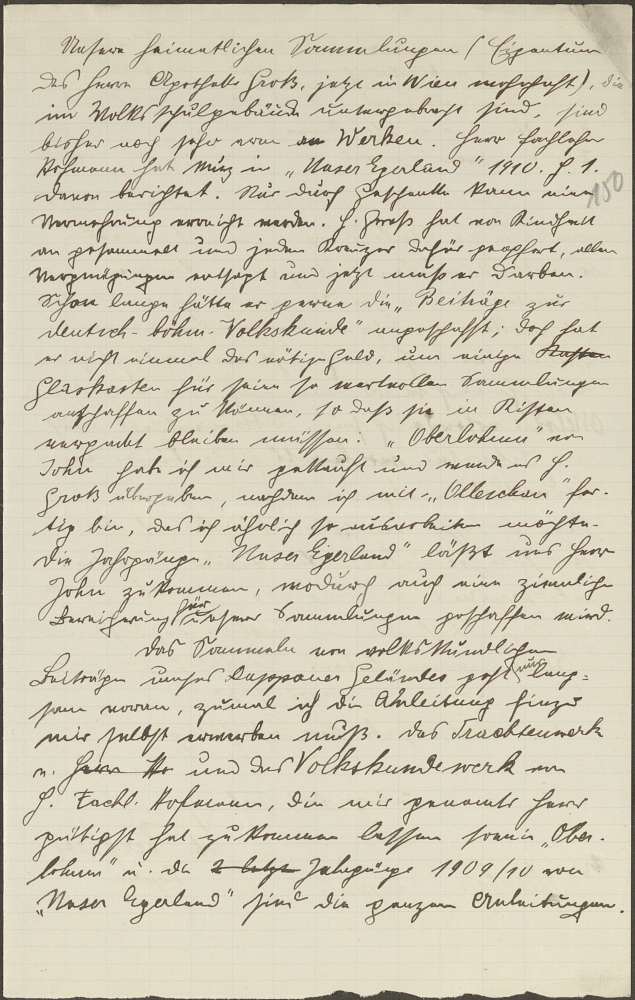 Unsere heimatlichen Sammlungen (Eigentum
des Herrn Apotheker Groß, jetzt in Wien wohnhaft), die
im Volksschulgebäude untergebracht sind, sind
bisher noch sehr arm an Werken. Herr Fachlehrer
Hofmann hat März in „Unser Egerland" 1910. H. 1.
davon berichtet. Nur durch Geschenke kann eine
150
Vermehrung erreicht werden. H. Groß hat von Kindheit
an gesammelt und jeden Kreuzer dafür geopfert, allen
Vergnügungen entsagt und jetzt muß er darben.
Schon lange hätte er gerne die „Beiträge zur
deutsch-böhm. Volkskunde" angeschafft; doch hat
er nicht einmal das nötige Geld, um einige Kasten
Glaskasten für seine so wertvollen Sammlungen
anschaffen zu können, so daß sie in Kisten
verpackt bleiben müssen. „Oberlohma" von
John habe ich mir gekauft und werde es H.
Groß übergeben, nachdem ich mit „Olleschau" fer-
tig bin, das ich ähnlich so ausarbeiten möchte.
Die Jahrgänge „Unser Egerland" läßt uns Herr
John zukommen, wodurch auch eine ziemliche
Bereicherung für unserer Sammlungen geschaffen wird.
Das Sammeln von volkskundlichen
Beiträgen unseres Geländes geht nur lang-
sam voran, zumal ich die Anleitung hiezu
mir selbst erwerben muß. Das Trachtenwerk
u. Herrn Ho und das Volkskundewerk von
H. Fachl. Hofmann, die mir genannter Herr
gütigst hat zukommen lassen sowie „Ober-
lohma" u. die 2 letzten Jahrgänge 1909/10 von
„Unser Egerland" sind die ganzen Anleitungen.